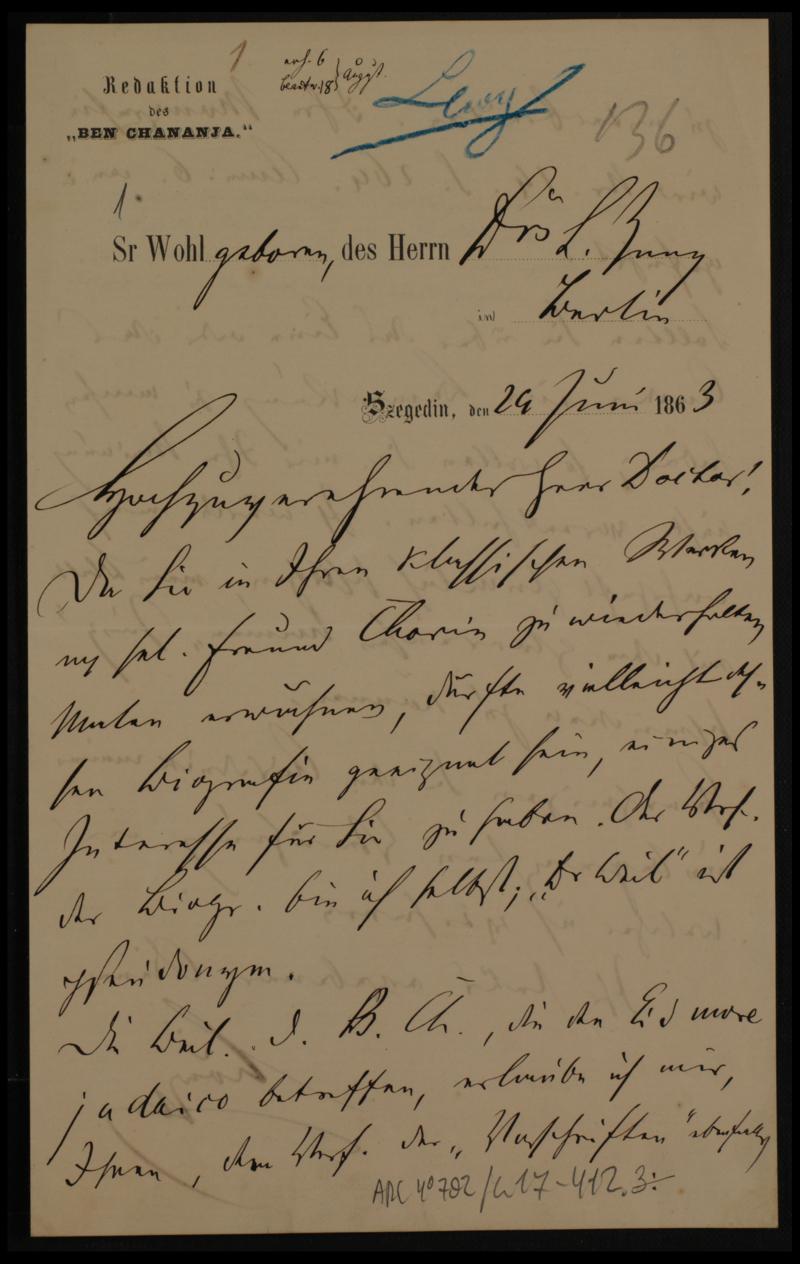 1
erh. 6
beantw. 18 } August.
Redaktion
des
„BEN CHANANJA."
Löwy
136
1.
Sr Wohlgeboren, des Herrn Drs L. Zunz
in Berlin
Szegedin, den 29 Juni 1863
Hochzuverehrender Herr Doctor!
Da Sie in Ihren klassischen Werken
m. sel. Freund Chorin zu wiederholten
Malen erwähnen, dürfte vielleicht des-
sen Biografie geeignet sein, einiges
Interesse für Sie zu haben. Der Verf.
der Biogr. bin ich selbst; „Dr Weil" ist
pseudonym.
Die Beil. d. B. Ch., die den Eid more
judaico betreffen, erlaube ich mir,
Ihnen, dem Verf. der „Vorschriften" ebenfalls
ARC 4° 792/G17-412.3.